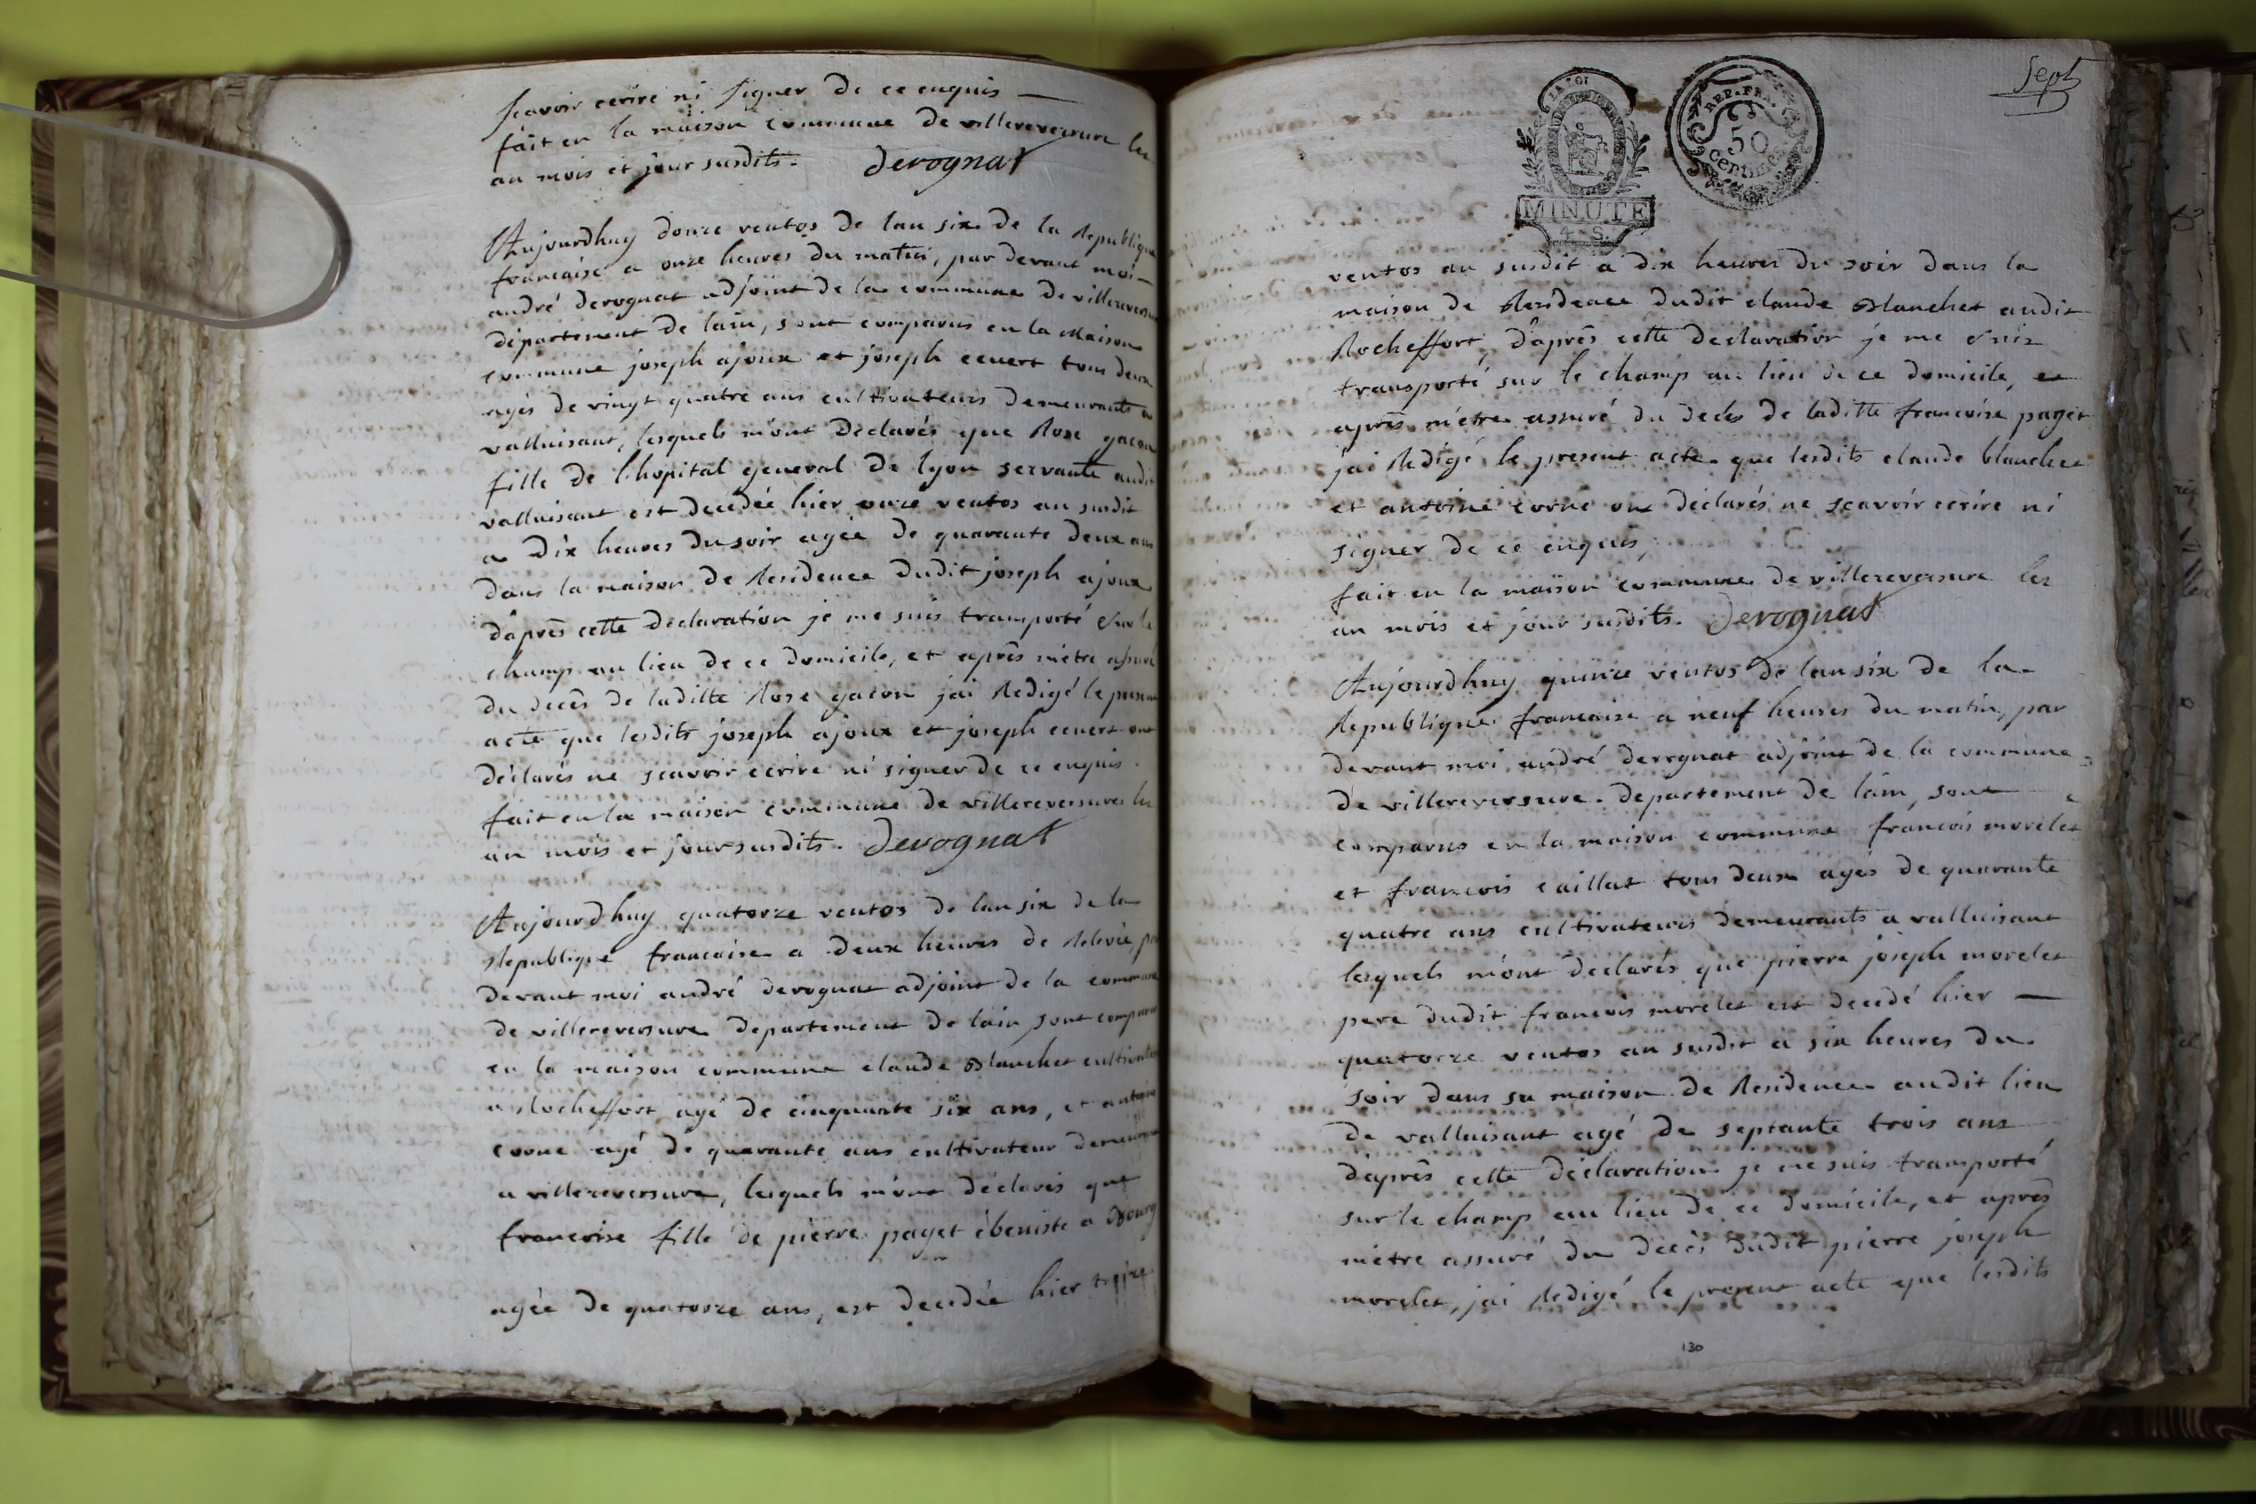 scavoir ecrire ni signer de ce enquis —
fait en la maison commune de villereversure les
an mois et jour susdits. Derognat
Aujourdhuy douze ventos de lan six de la Republique
francaise a onze heures du matin, par devant moi —
andré derognat adjoint de la commune de villereversure
département de lain, sont comparus en la Maison
commune joseph ajoux et joseph convert tous deux
agés de vingt quatre ans cultivateurs demeurants a
valluisant, lesquels m'ont declarés que Rose gacon
fille de l'hopital general de lyon servante audit
valluisant est decedée hier onze ventos an susdit
a dix heures du soir agée de quarante deux ans
dans la maison de Residence dudit joseph ajoux
d'aprês cette declaration je me suis transporté sur le
champ au lieu de ce domicile, et aprês m'etre assuré
du decês de laditte Rose gacon jai Redigé le present
acte que lesdits joseph ajoux et joseph convert ont
déclarés ne scavoir ecrire ni signer de ce enquis.
fait en la maison commune de villereversure les
an mois et jour susdits. Derognat
Aujourdhuy quatorze ventos de lan six de la
Republique francaise a deux heures de Relevée par
devant moi andré derognat adjoint de la commune
de villereversure departement de lain, sont comparus
en la maison commune claude Blanchet cultivateur
a Rocheffort agé de cinquante six ans, et antoine
corne agé de quarante ans cultivateur demeurant
a villereversure, lesquels m'ont déclarés que
francoise fille de pierre paget ébeniste a Bourg
agée de quatorze ans, est decedée hier treize
Sept
LA LOI
MINUTE
4. S.
REP. FRA.
50
centimes
ventos an susdit a dix heures du soir dans la
maison de Residence dudit claude Blanchet audit
Rocheffort, d'aprês cette declaration je me suis
transporté sur le champ au lieu de ce domicile, et
aprês m'étre assuré du decês de laditte francoise paget
jai Redigé le present acte que lesdits claude blanchet
et antoine corne ont déclarés ne scavoir ecrire ni
signer de ce enquis,
fait en la maison commune de villereversure les
an mois et jour susdits. Derognat
Aujourdhuy quinze ventos de lan six de la
Republique francaise a neuf heures du matin, par
devant moi andré derognat adjoint de la commune
de villereversure departement de lain, sont
comparus en la maison commune francois morelet
et francois caillat tous deux agés de quarante
quatre ans cultivateurs demeurants a valluisant
lesquels m'ont declarés que pierre joseph morelet
pere dudit francois morelet est decedé hier —
quatorze ventos an susdit a six heures du
soir dans sa maison de Residence audit lieu
de valluisant agé de septante trois ans
d'aprês cette déclaration je me suis transporté
sur le champ au lieu de ce domicile, et aprês
m'etre assuré du decês dudit pierre joseph
morelet, jai Redigé le present acte que lesdits
130